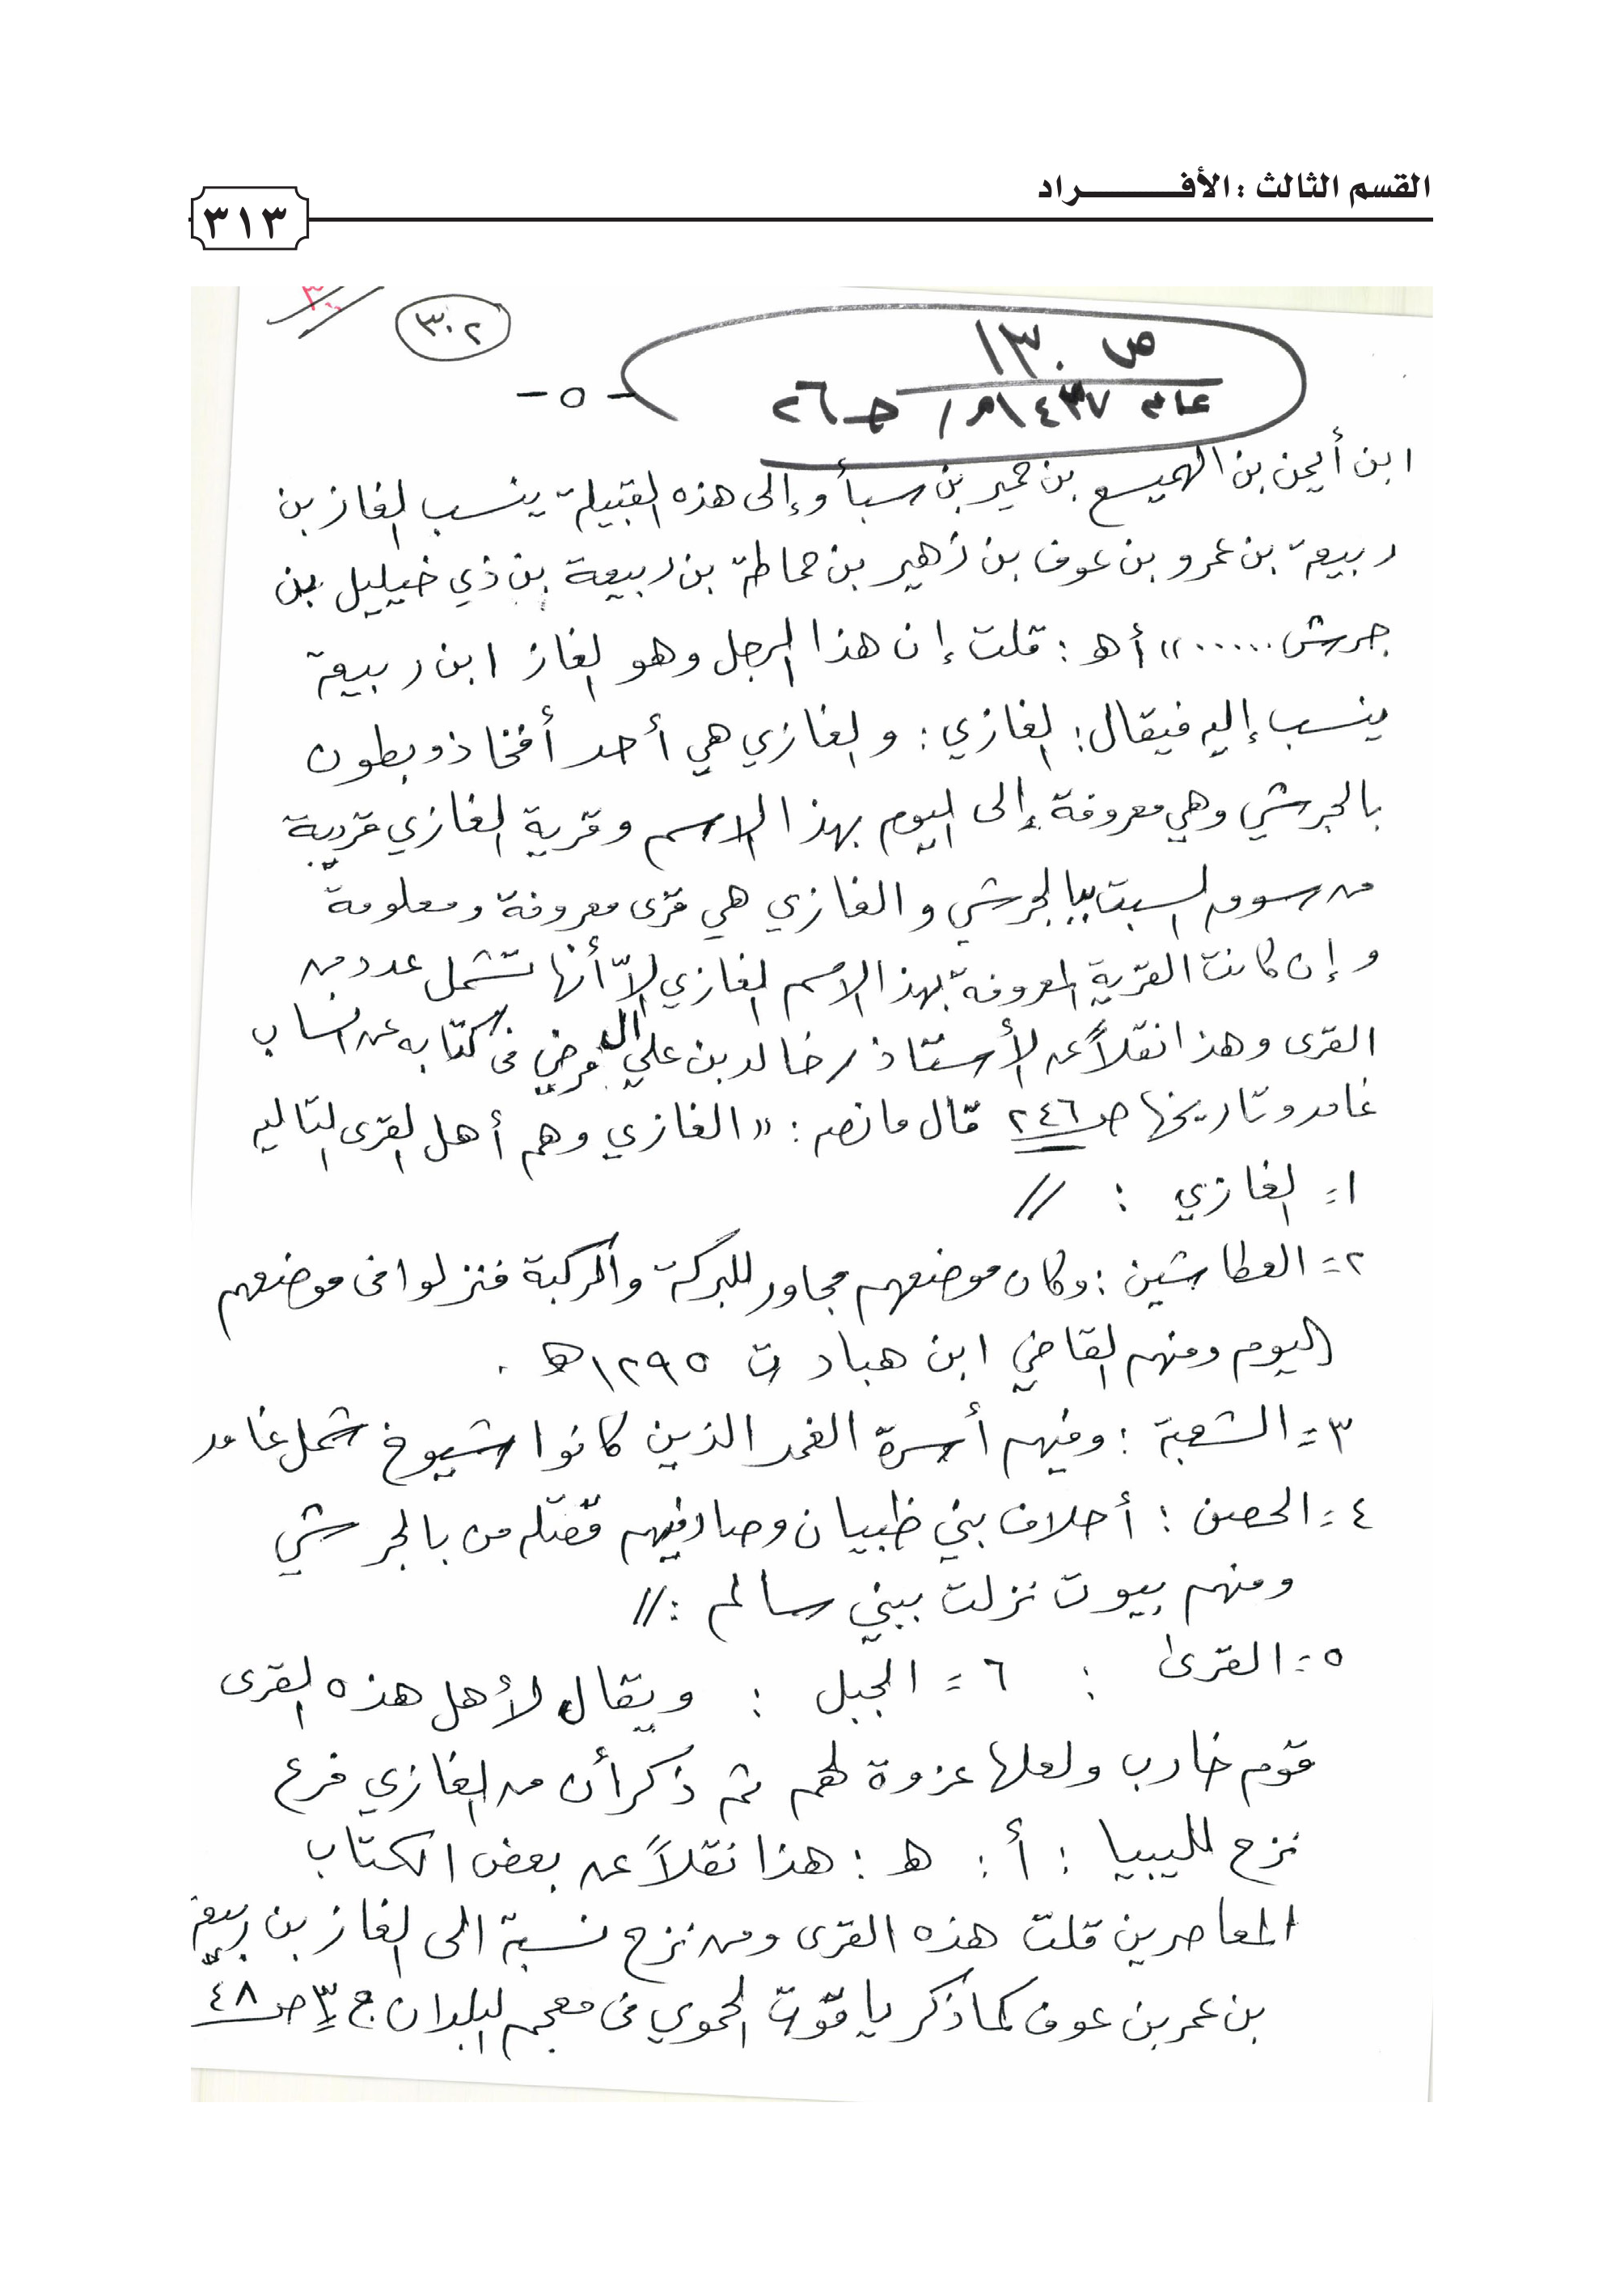 القسم الثالث : الأفـــــــراد
٣١٣
٣٠٢
ص ١٣٠
عام ١٤٣٧هـ / جـ ٢٦
- ٥ -
ابن أيمن بن الهميسع بن حمير بن سبأ وإلى هذه القبيلة ينسب الغاز بن
ربيعة بن عمرو بن عوف بن زهير بن حماطة بن ربيعة بن ذي خيليل بن
جرش ......» أهـ : قلت إن هذا الرجل وهو الغاز ابن ربيعة
ينسب إليه فيقال: الغازي : والغازي هي أحد أفخاذ وبطون
بالجرشي وهي معروفة إلى اليوم بهذا الاسم وقرية الغازي قريبة
من سوق السبت ببالجرشي والغازي هي قرى معروفة ومعلومة
وإن كانت القرية المعروفة بهذا الاسم الغازي إلاّ أنها تشمل عدد من
القرى وهذا نقلاً عن الأستاذ / خالد بن علي في كتابه عن انساب
غامد وتاريخها صـ ٢٤٦ قال ما نصه : « الغازي وهم أهل القرى التاليه
١= الغازي : //
٢= العطاشين : وكان موضعهم مجاور للبركة والركبة فنزلوا في موضعهم
اليوم ومنهم القاضي ابن هباد ت ١٢٩٥هـ .
٣= الشعبة : وفيهم أسرة الغمد الذين كانوا شيوخ شمل غامد
٤= الحصن : أحلاف بني ظبيان وصار فيهم قتله من بالجرشي
ومنهم بيوت نزلت ببني سالم : //
٥= القرى : ٦= الجبل : ويقال لأهل هذه القرى
قوم خارب ولعلها عزوة لهم ثم ذكر أن من الغازي فرع
نزح لليبيا : أ : هـ : هذا نقلاً عن بعض الكتاب
المعاصرين قلت هذه القرى ومن نزح نسبة الى الغاز بن ربيعة
بن عمر بن عوف كما ذكر ياقوت الحموي في معجم البلدان ج ٣ صـ ٤٨